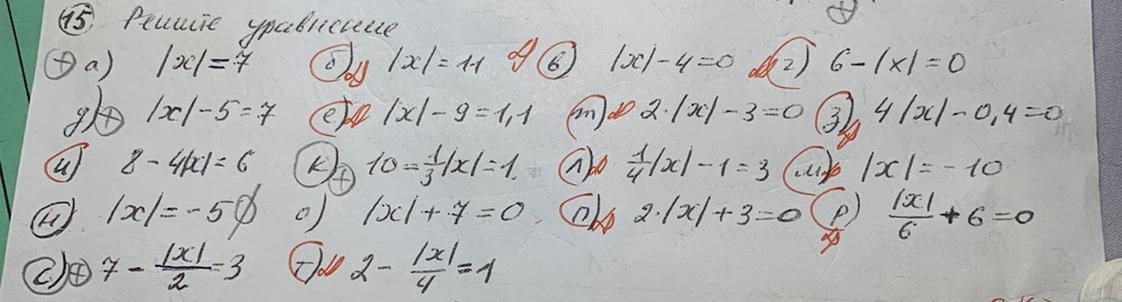 15 Решите уравнение
+ а) |x|=7 б) |x|=11 в) |x|-4=0 г) 6-|x|=0
д) + |x|-5=7 е) |x|-9=1,1 т) 2·|x|-3=0 з) 4|x|-0,4=0
и) 8-4|x|=6 к) + 10=\frac{1}{3}|x|=1 л) \frac{1}{4}|x|-1=3 м) |x|=-10
н) |x|=-5 ∅ о) |x|+7=0 п) 2·|x|+3=0 р) \frac{|x|}{6}+6=0
с) + 7-\frac{|x|}{2}=3 т) 2-\frac{|x|}{4}=1